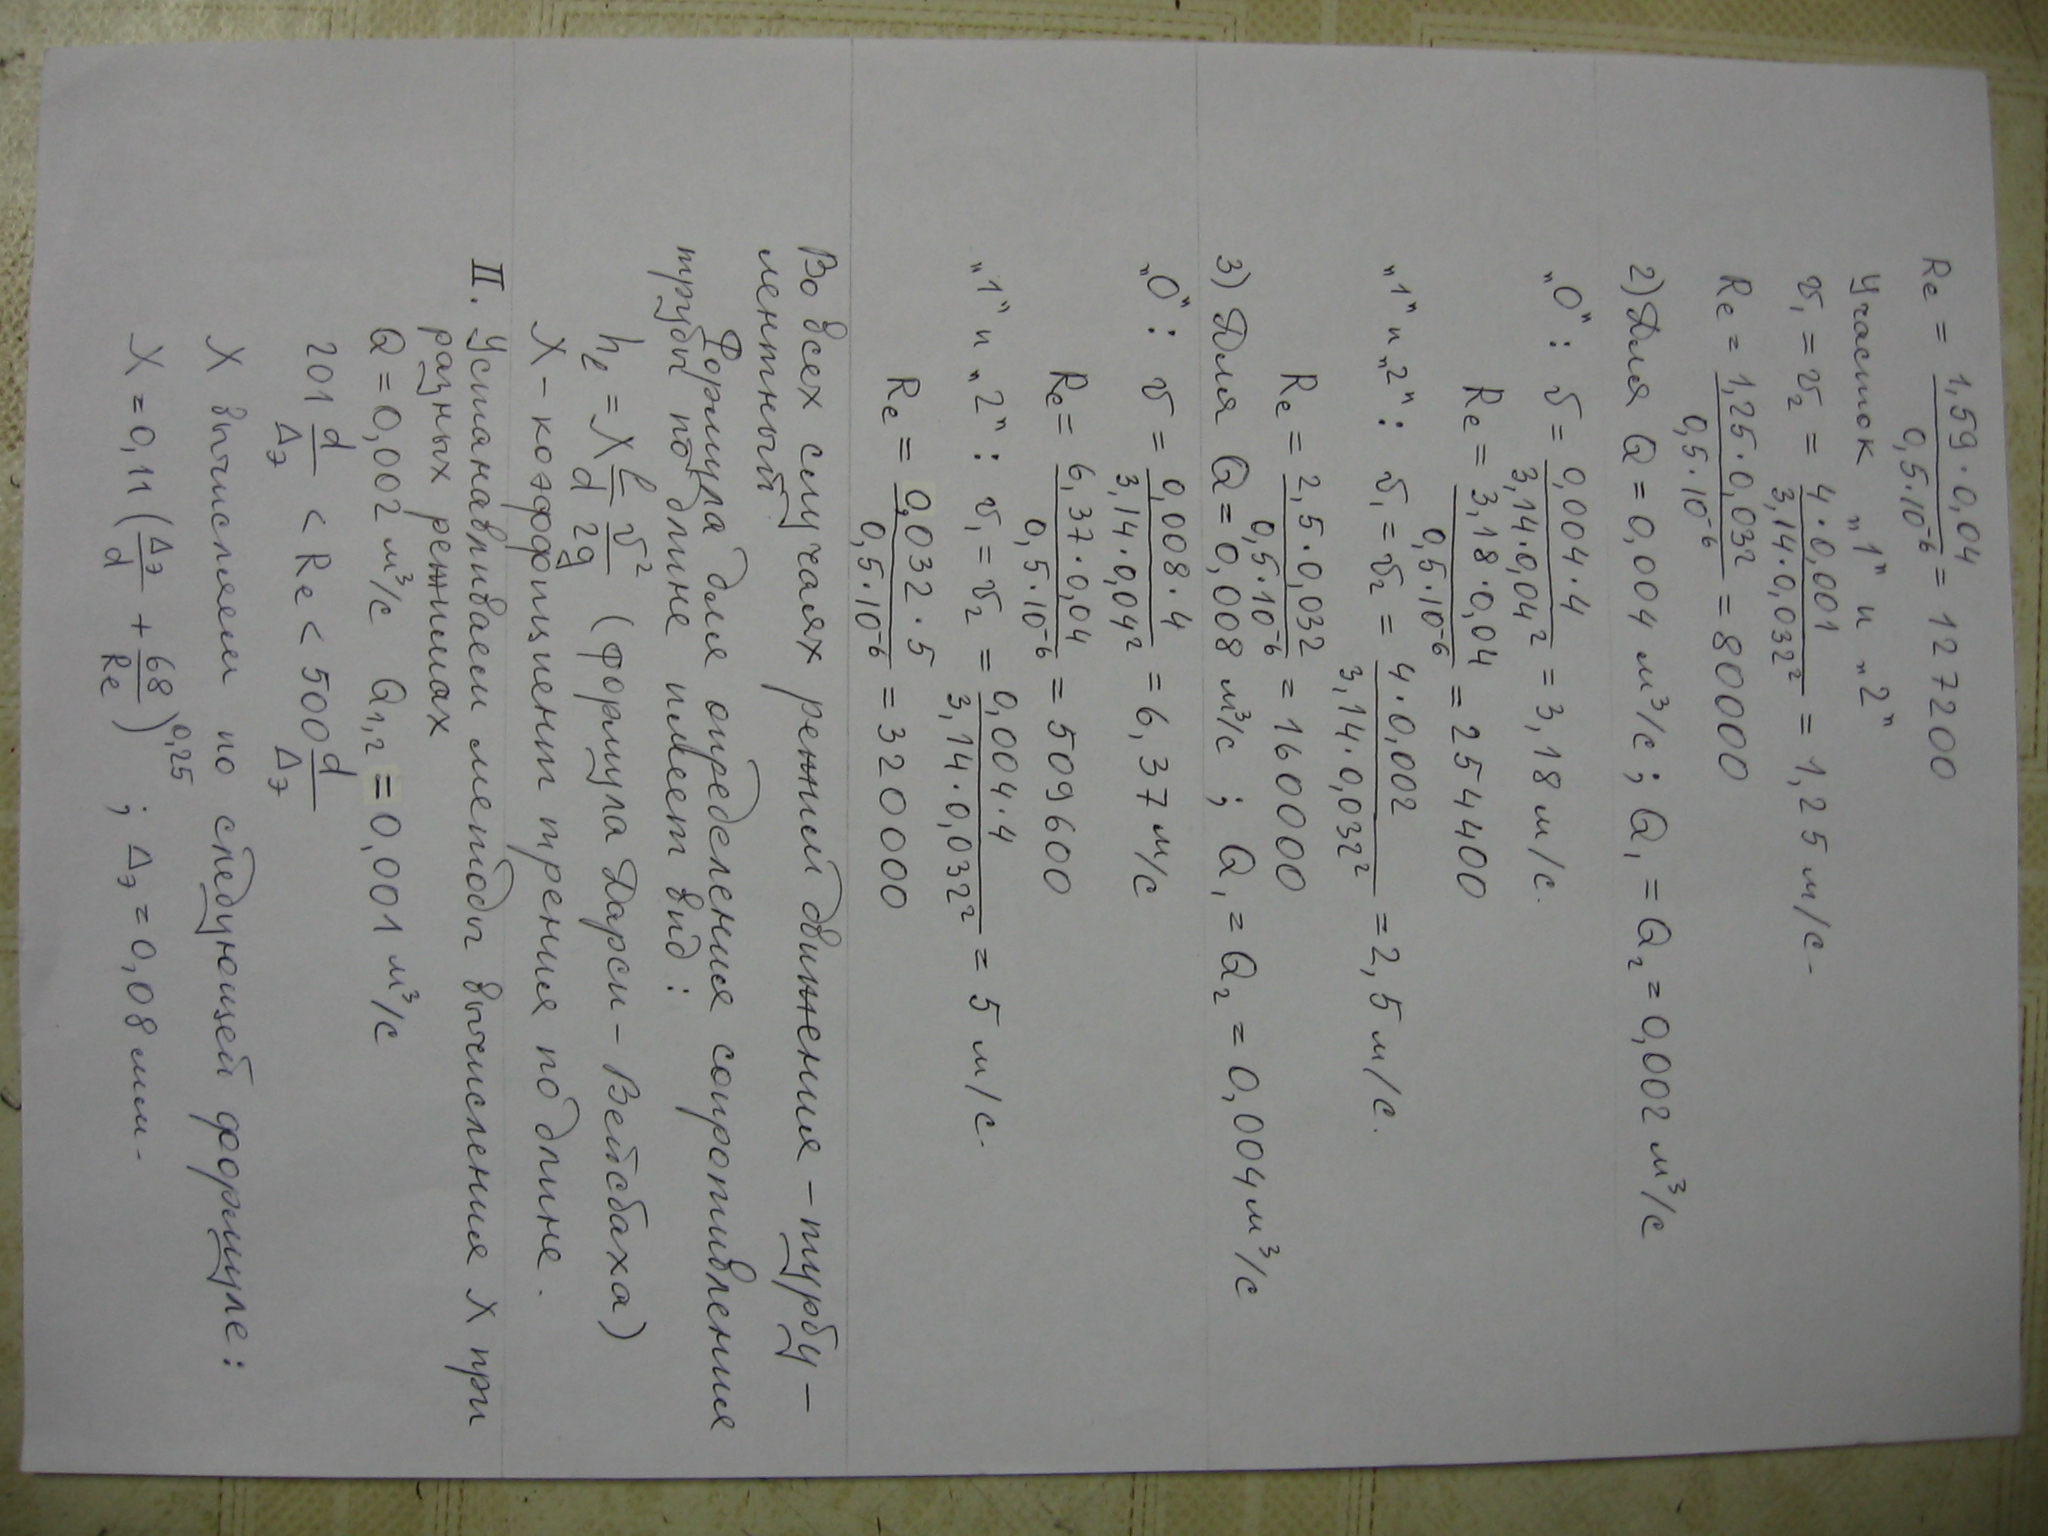 Re = 1,59 · 0,04 / 0,5·10⁻⁶ = 127200
Участок „1" и „2"
v₁ = v₂ = 4 · 0,001 / 3,14 · 0,032² = 1,25 м/с.
Re = 1,25 · 0,032 / 0,5·10⁻⁶ = 80000
2) Для Q = 0,004 м³/с ; Q₁ = Q₂ = 0,002 м³/с
„0" : v = 0,004 · 4 / 3,14 · 0,04² = 3,18 м/с.
Re = 3,18 · 0,04 / 0,5·10⁻⁶ = 254400
„1" и „2" : v₁ = v₂ = 4 · 0,002 / 3,14 · 0,032² = 2,5 м/с.
Re = 2,5 · 0,032 / 0,5·10⁻⁶ = 160000
3) Для Q = 0,008 м³/с ; Q₁ = Q₂ = 0,004 м³/с
„0" : v = 0,008 · 4 / 3,14 · 0,04² = 6,37 м/с
Re = 6,37 · 0,04 / 0,5·10⁻⁶ = 509600
„1" и „2" : v₁ = v₂ = 0,004 · 4 / 3,14 · 0,032² = 5 м/с.
Re = 0,032 · 5 / 0,5·10⁻⁶ = 320000
Во всех случаях режим движения – турбу–
лентный
Формула для определения сопротивления
трубы по длине имеет вид :
hℓ = λ ℓ/d v²/2g (формула Дарси – Вейсбаха)
λ – коэффициент трения по длине.
II. Устанавливаем методы вычисления λ при
разных режимах
Q = 0,002 м³/с Q₁,₂ = 0,001 м³/с
201 d/Δэ < Re < 500 d/Δэ
λ вычисляем по следующей формуле :
λ = 0,11 (Δэ/d + 68/Re)^0,25 ; Δэ = 0,08 мм.